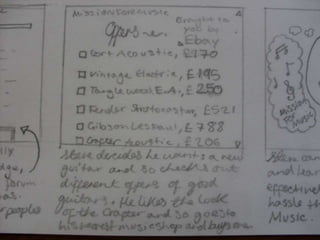 Missionformusic
Offers
Brought to
you by
Ebay
Cort Acoustic, £170
Vintage Electric, £195
Tanglewood E.A., £250
Fender Stratocaster, £521
Gibson Lespaul, £788
Crafter Acoustic, £206
Steve decides he wants a new
guitar and so checks out
different offers of good
guitars. He likes the look
of the Crafter and so goes to
his nearest music shop and buys one.
lly
dge,
forum
as.
peoples
MISSION
FOR
MUSIC
Steve can
and lear
effective
hassle th
Music.